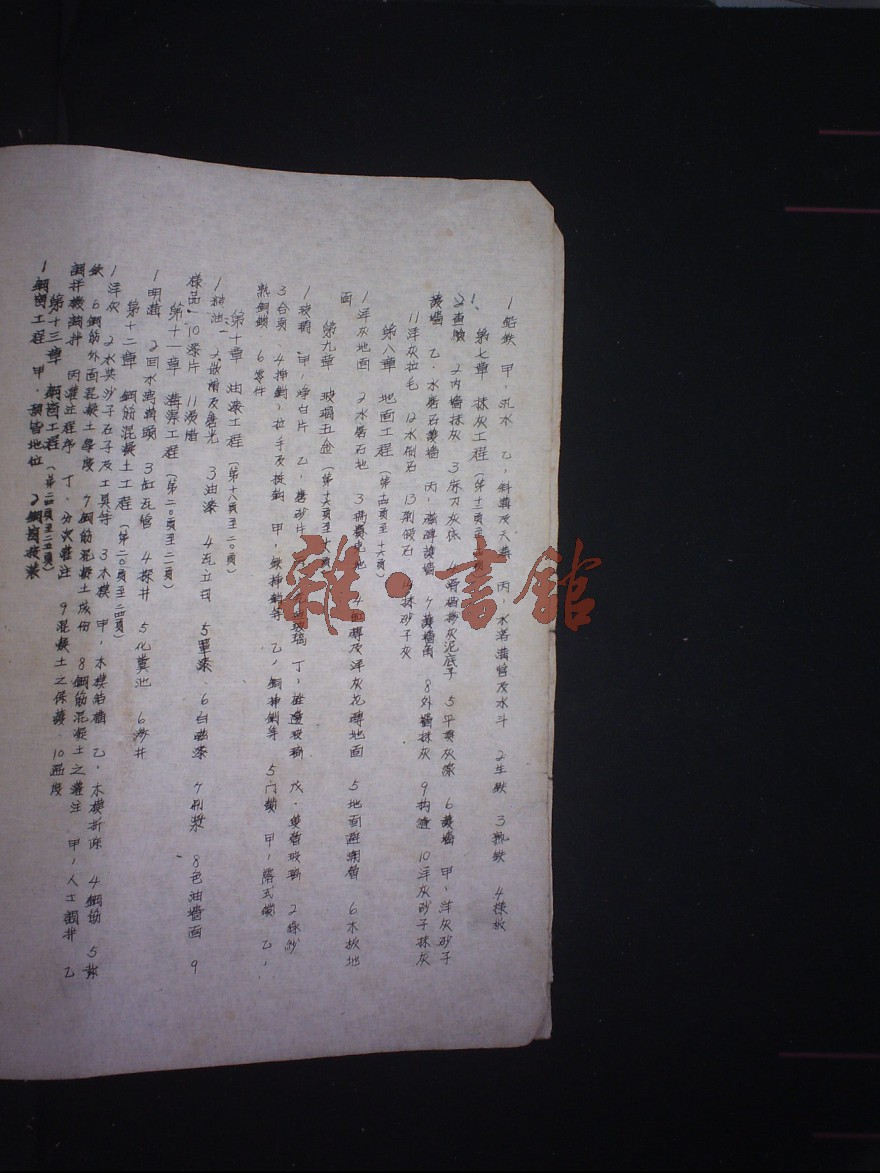 1 鉛鉄 甲，汎水 乙，斜溝及天溝 丙，水落溝管及水斗 2 生鉄 3 熟鉄 4 様板
第七章 抹灰工程（第十三頁至 頁）
1 2 内墻抹灰 3 麻刀灰 4 灰泥底子 5 平頂灰 6 護墻 甲，洋灰砂子
護墻 乙，水磨石護墻 丙，磁磚護墻 7 護墻角 8 外墻抹灰 9 拘縫 10 洋灰砂子抹灰
11 洋灰拉毛 12 水刷石 13 剁假石 抹砂子灰
第八章 地面工程（第十四頁至十六頁）
1 洋灰地面 2 水磨石地 3 瑪賽克地 4 缸磚及洋灰花磚地面 5 地面避潮層 6 木板地
面
第九章 玻璃五金（第十六頁至十八頁）
1 玻璃 甲，净白片 乙，磨砂片 玻璃 丁， 玻璃 戊，雙層玻璃 2 綠紗
3 合頁 4 挿銷，拉手及挺鈎 甲，鉄挿銷等 乙，銅挿銷等 5 门鎖 甲，落式鎖 乙，
6 零件
第十章 油漆工程（第十八頁至二〇頁）
1 2 及磨光 3 油漆 4 瓦立司 5 罩漆 6 白磁漆 7 刷漿 8 色油墻面 9
樣品 10 漆片 11 燙蜡
第十一章 溝渠工程（第二〇頁至二一頁）
1 明溝 2 回水溝 3 缸瓦管 4 探井 5 化糞池 6 滲井
第十二章 鋼筋混凝土工程（第二〇頁至二四頁）
1 洋灰 2 水英沙子石子及工具等 3 木模 甲，木模 乙，木模拆除 4 鋼筋 5 紮
鉄 6 鋼筋外面混凝土厚度 7 鋼筋混凝土成份 8 鋼筋混凝土之灌注 甲，人工調拌 乙
丙灌注程序 丁，分次灌注 9 混凝土之保護 10 温度
第十三章 鋼窗工程（第二四頁至二五頁）
1 鋼窗工程 甲， 地位 2 鋼窗按裝
雜·書館